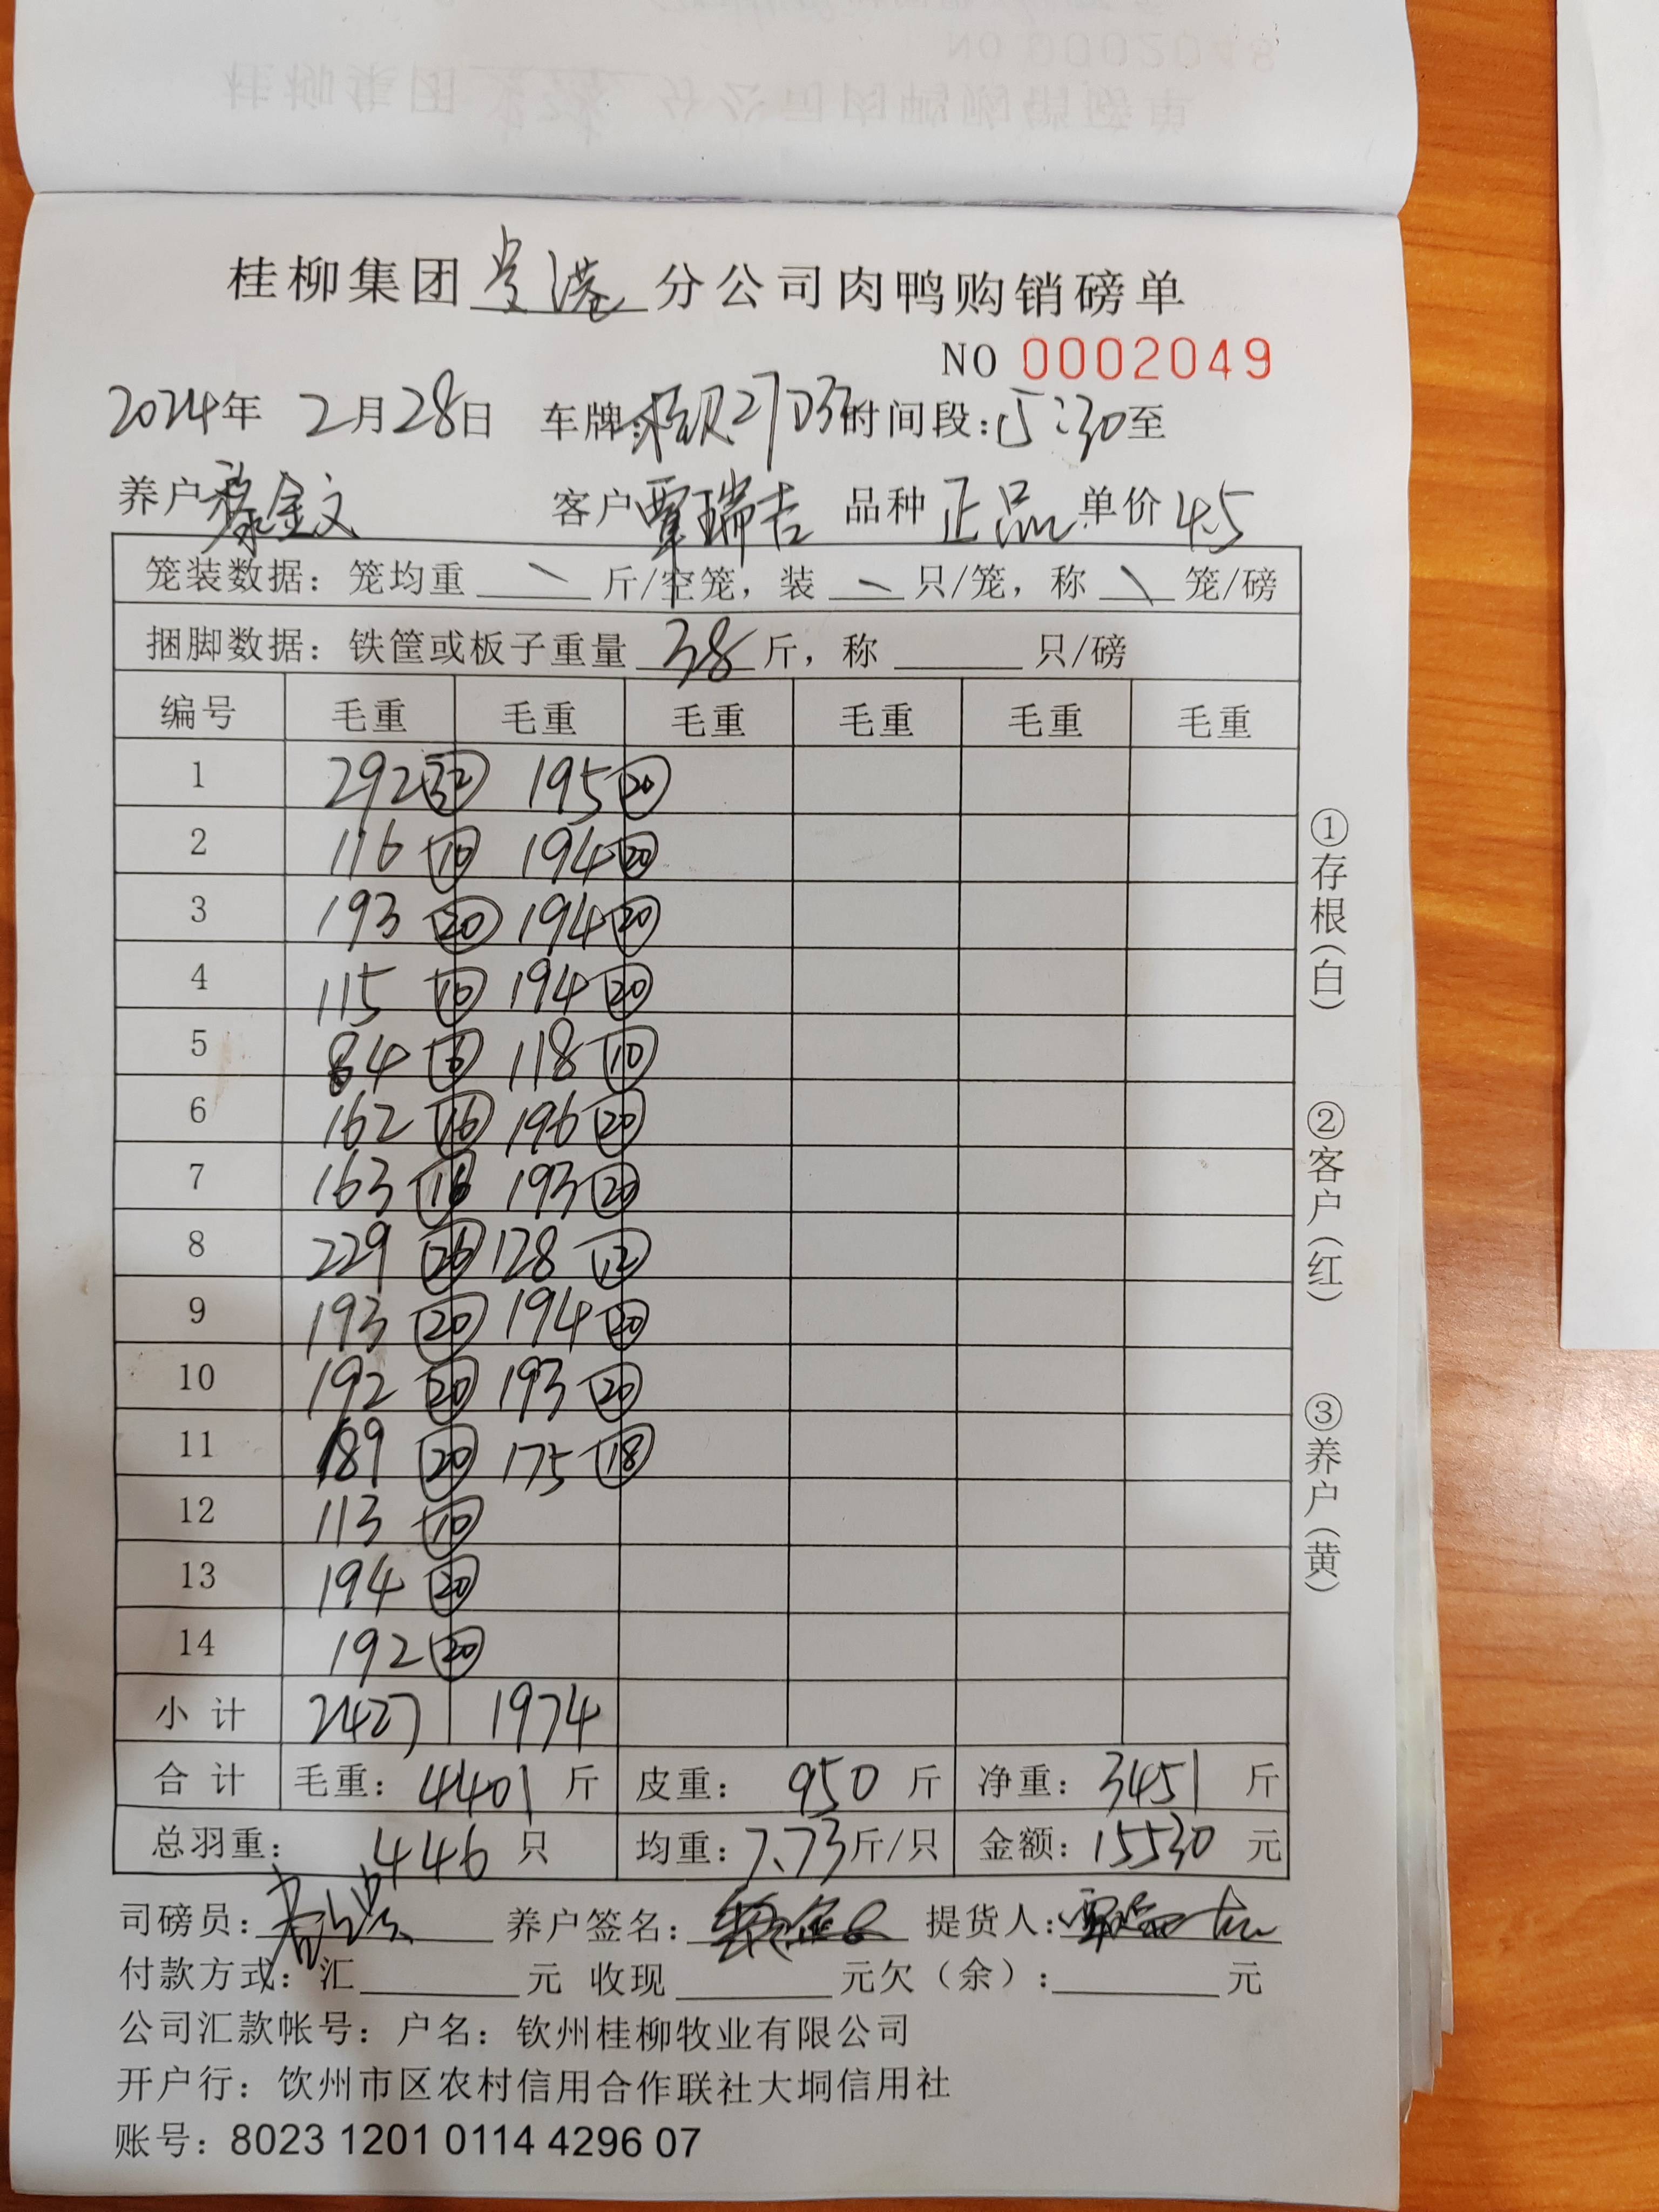 桂柳集团贵港分公司肉鸭购销磅单
NO 0002049
2024年 2月28日 车牌: 时间段:15:30至
养户 金文 客户覃瑞吉 品种 正品 单价 4.5
笼装数据: 笼均重 \ 斤/空笼, 装 \ 只/笼, 称 \ 笼/磅
捆脚数据: 铁筐或板子重量 38 斤, 称 只/磅
编号 毛重 毛重 毛重 毛重 毛重 毛重
1 292 32 195 20
2 116 10 194 20
3 193 20 194 20
4 115 10 194 20
5 84 6 118 10
6 162 16 196 20
7 163 16 193 20
8 229 26 128 12
9 193 20 194 20
10 192 20 193 20
11 189 20 175 18
12 113 10
13 194 20
14 192 20
小 计 2427 1974
合 计 毛重: 4401 斤 皮重: 950 斤 净重: 3451 斤
总羽重: 446 只 均重: 7.73 斤/只 金额: 15530 元
司磅员: 养户签名: 提货人:
付款方式: 汇 元 收现 元欠(余): 元
公司汇款帐号: 户名: 钦州桂柳牧业有限公司
开户行: 饮州市区农村信用合作联社大垌信用社
账号: 8023 1201 0114 4296 07
①存根(白)
②客户(红)
③养户(黄)